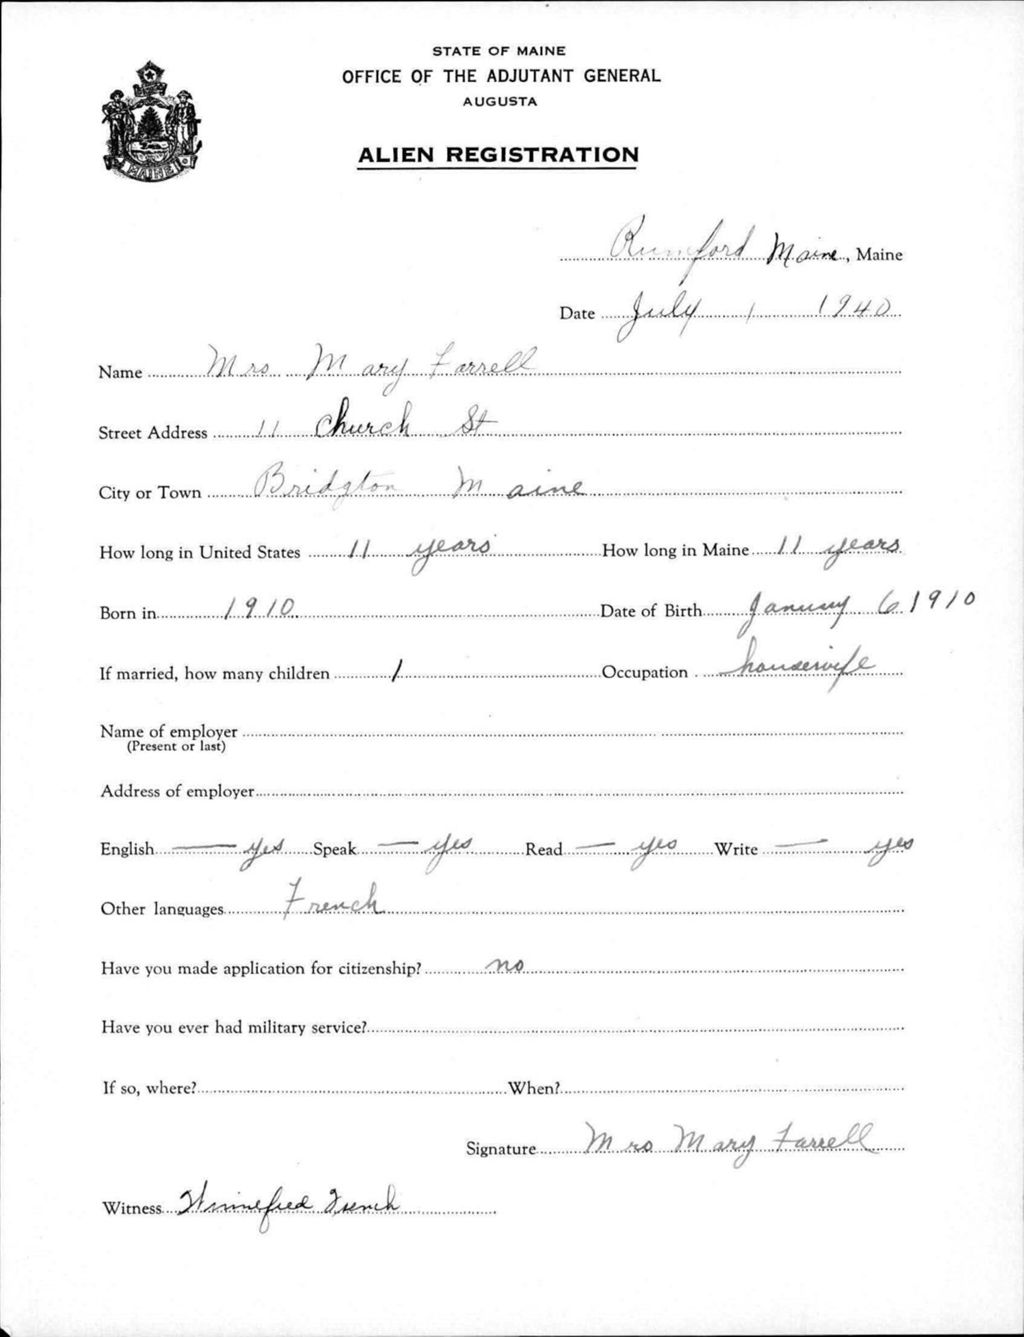 STATE OF MAINE
OFFICE OF THE ADJUTANT GENERAL
AUGUSTA
ALIEN REGISTRATION
MAINE
Rumford Maine, Maine
Date July 1 1940
Name Mrs Mary Farrell
Street Address 11 Church St
City or Town Bridgton Maine
How long in United States 11 years How long in Maine 11 years
Born in 1910 Date of Birth January 6 1910
If married, how many children 1 Occupation housewife
Name of employer
(Present or last)
Address of employer
English — yes Speak — yes Read — yes Write — yes
Other languages French
Have you made application for citizenship? no
Have you ever had military service?
If so, where? When?
Signature Mrs Mary Farrell
Witness Winnefred French